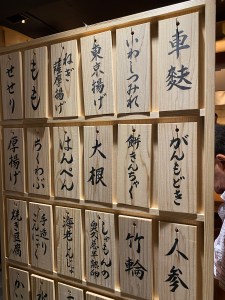 車麩
いわしつみれ
東京揚げ
ねぎ
薩摩揚げ
もも
せせり
がんもどき
餅きんちゃく
大根
はんぺん
ちくわぶ
厚揚げ
人参
竹輪
しゃもんの
海老しんじょ
手造り
こんにゃく
焼き豆腐